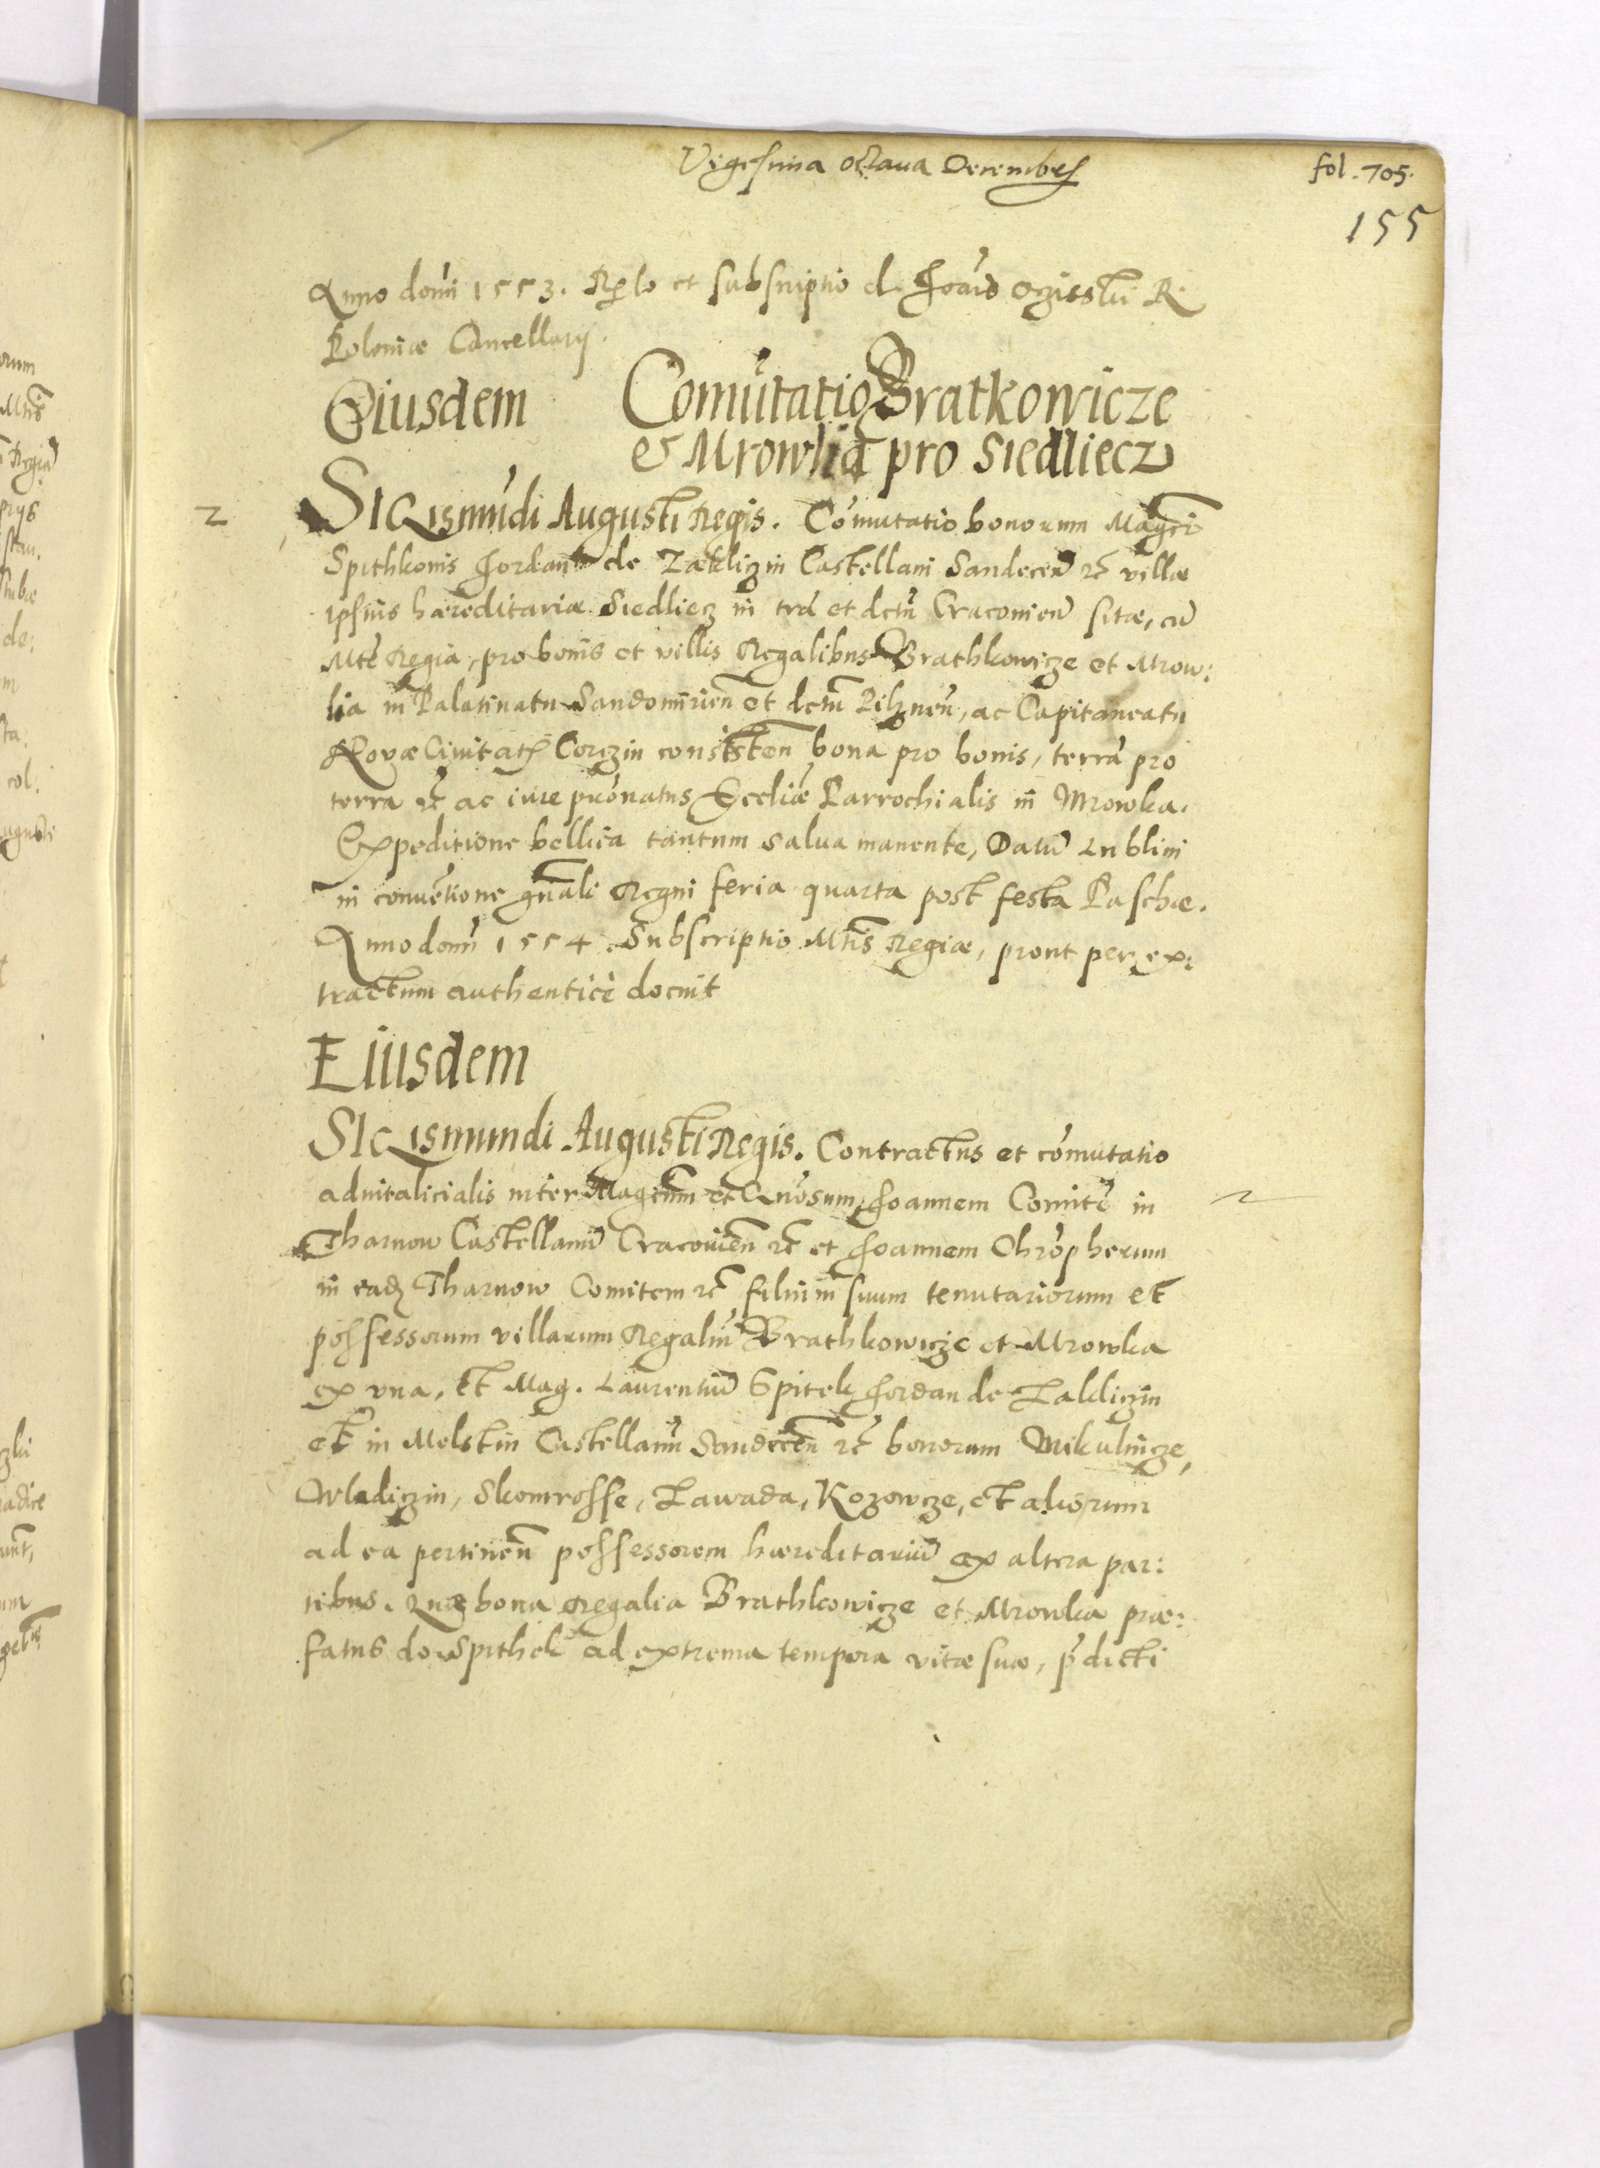 Vigesima octaua Decembris
fol. 705.
155
Anno domi 1553. Rlo et subscriptio d. Joais Ocziesski R.
Poloniæ Cancellarij.
Eiusdem
Comutatio Bratkowicze
et Mrowlia pro Siedliecz
2
SIGISmudi Augusti Regis. Comutatio bonorum Magci
Spithkonis Jordan de Zakliczin Castellani Sandecen rc villæ
ipsius hæreditariæ Siedliecz in tra et dctu Cracovien sitæ, cu
Mte Regia, pro bonis et villis Regalibus Brathkowicze et Mrow:
lia in Palatinatu Sandomirien et dctu Pilznen, ac Capitaneatu
Novæ Civitatis Corczin consisten bona pro bonis, terra pro
terra rc ac iure pronatus Eccliæ Parrochialis in Mrowka.
Expeditione bellica tantum salua manente, Datu Lublini
in conuetione gnali Regni feria quarta post festa Paschæ.
Anno domi 1554. Subscriptio Mtis Regiæ, prout per ex:
tractum authenticè docuit
Eiusdem
SIGISmundi Augusti Regis. Contractus et comutatio
aduitalicialis inter Magcum et Gnosum Joannem Comite in
2
Tharnow Castellanu Cracovien rc et Joannem Chropherum
in eadz Tharnow Comitem rc filium suum tenutariorum et
possessorum villarum Regaliu Brathkowicze et Mrowka
ex una, et Mag. Laurentiu Spitek Jordan de Zakliczin
et in Melstin Castellanu Sandecen rc bonorum Mikulincze,
Wladiczin, Skomrosse, Zawada, Kozowcze, et aliorum
ad ea pertinen possessorem hæreditariu ex altera par:
tibus. Quæ bona Regalia Brathkowicze et Mrowka præ:
fatus do Spithek ad extrema tempora vitæ suæ, pdicti